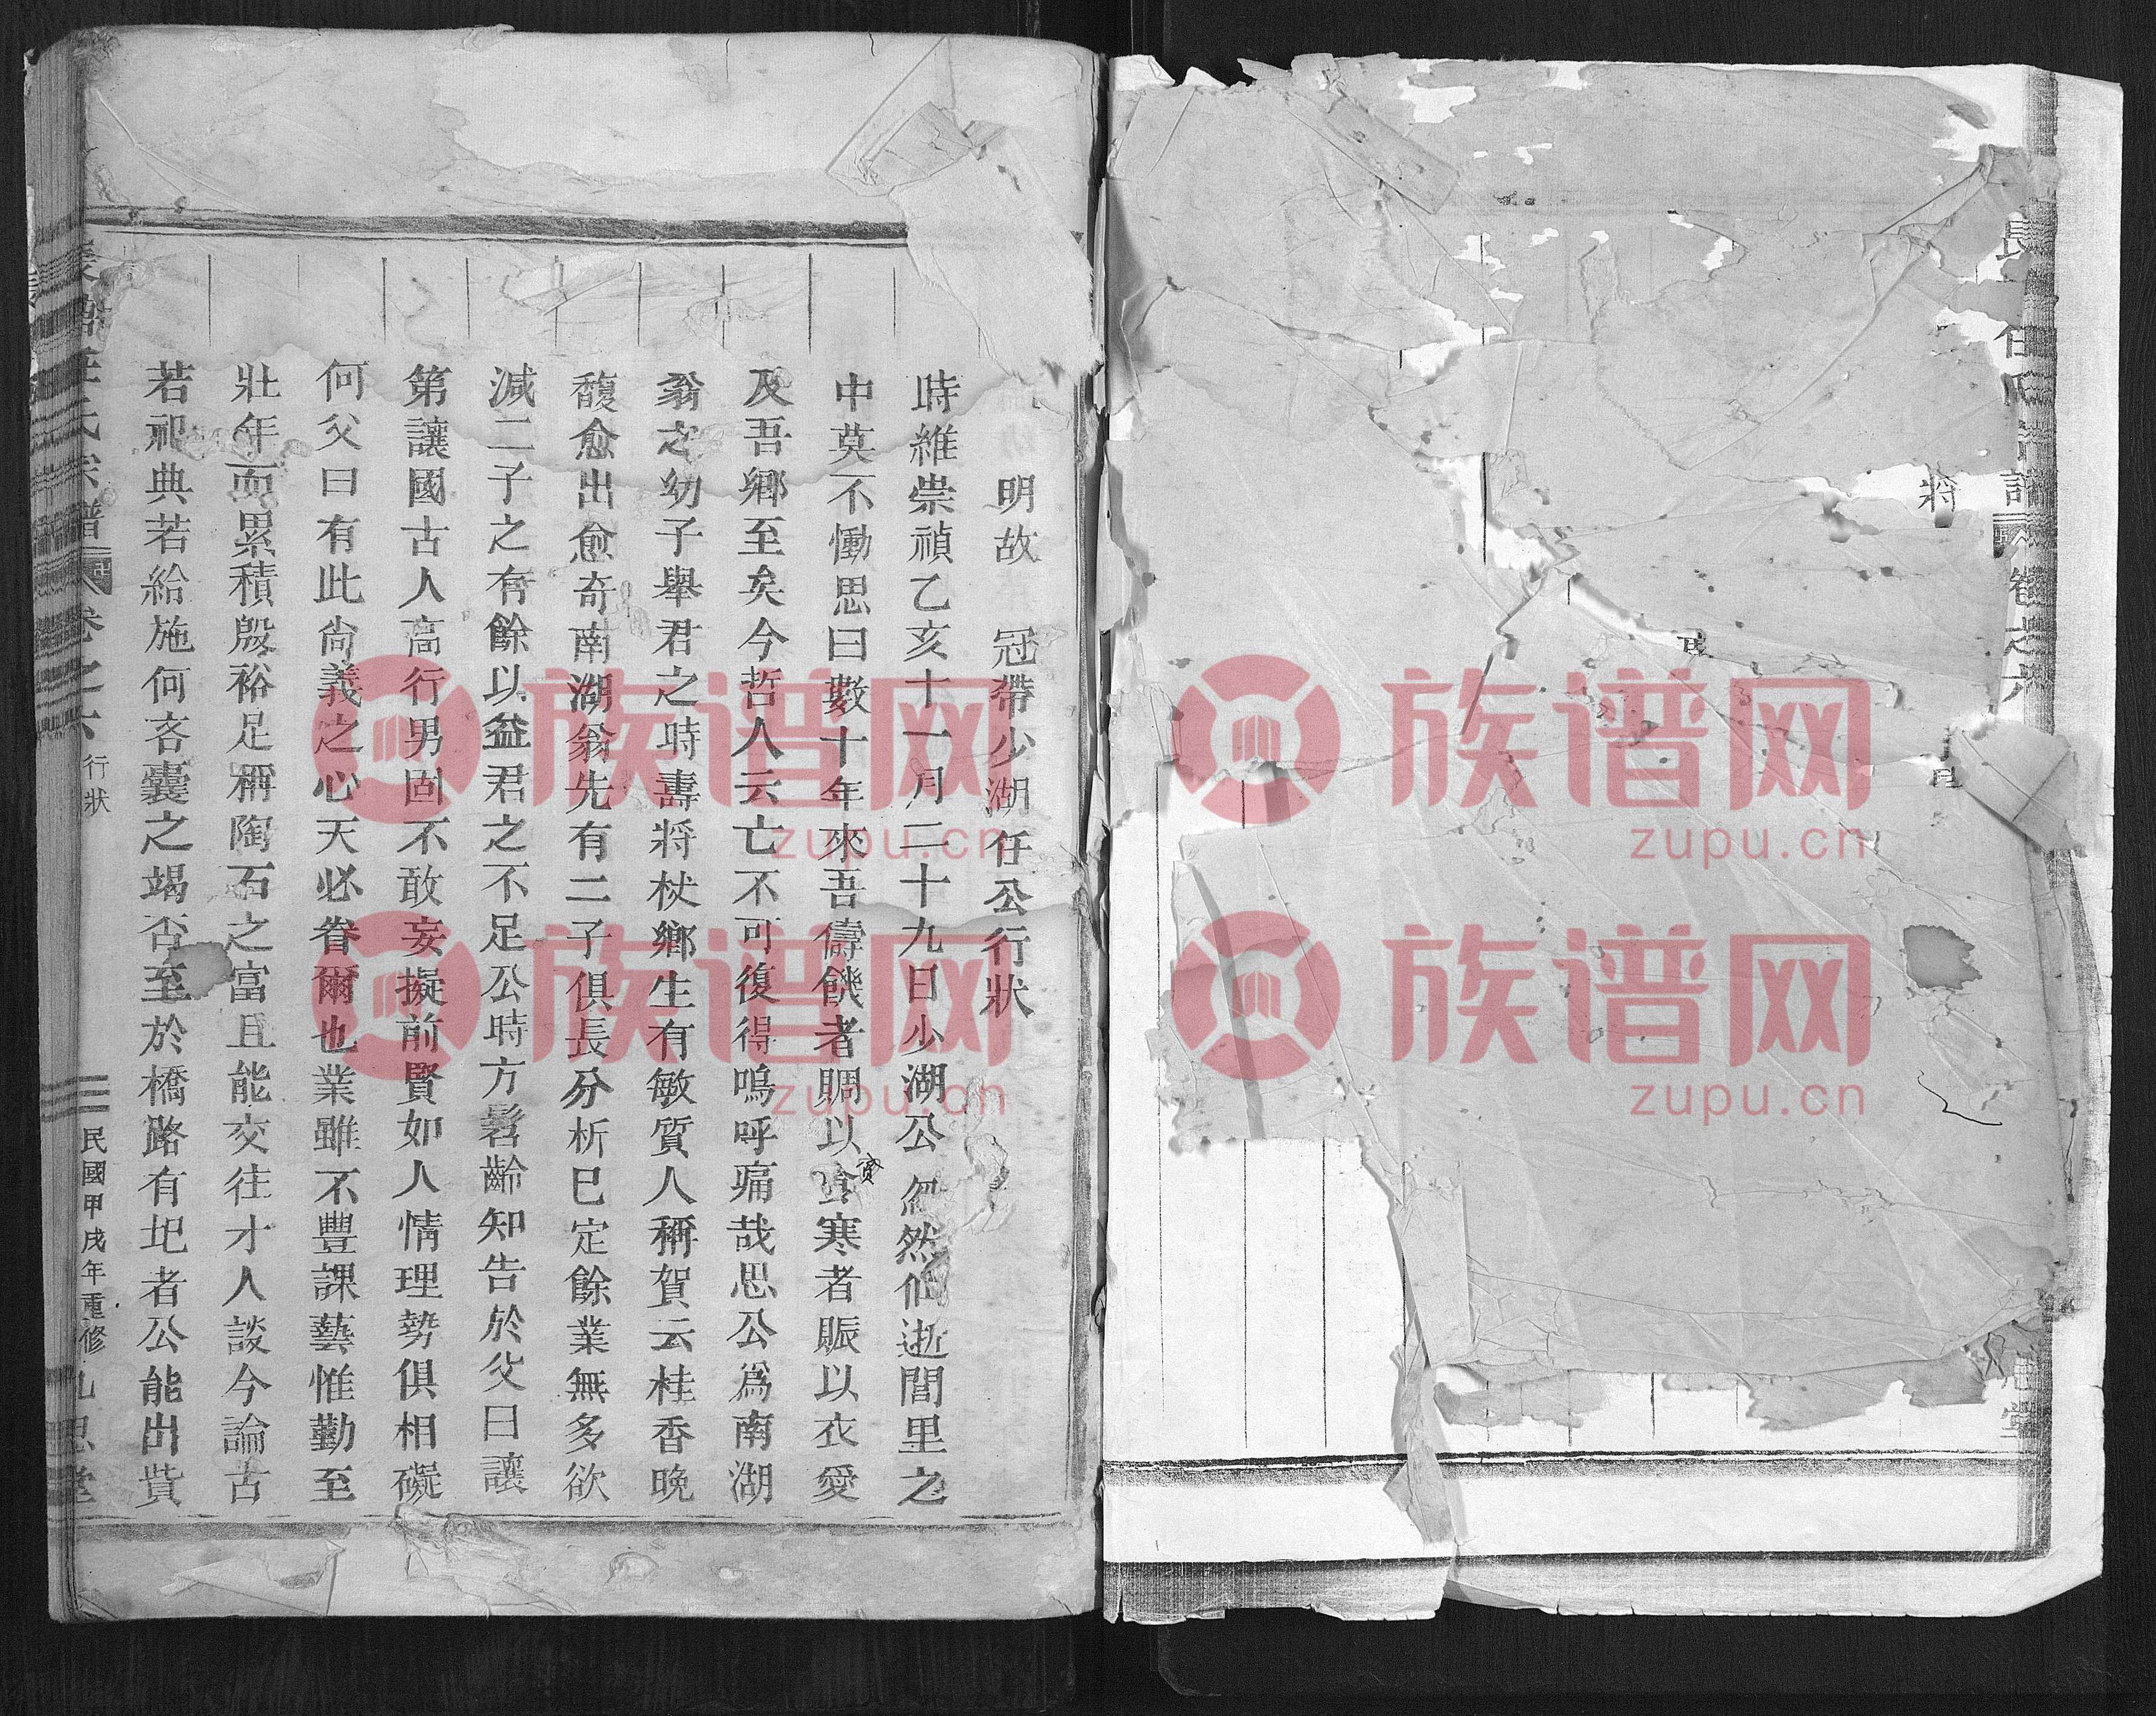 卷之六
將
明故 冠帶少湖任公行狀
時維崇禎乙亥十一月二十九日少湖公忽然仙逝閭里之
中莫不慟思曰數十年來吾儔饑者賙以食寒者賑以衣愛
及吾鄉至矣今哲人云亡不可復得嗚呼痛哉思公爲南湖
翁之幼子舉君之時壽將杖鄉生有敏質人稱賀云桂香晚
馥愈出愈奇南湖翁先有二子俱長分析已定餘業無多欲
減二子之有餘以益君之不足公時方髫齡知告於父曰讓
第讓國古人高行男固不敢妄擬前賢如人情理勢俱相礙
何父曰有此尙義之心天必眷爾也業雖不豐課藝惟勤至
壯年而累積殷裕足稱陶石之富且能交往才人談今論古
若祀典若給施何吝囊之竭否至於橋路有圯者公能出貲
任氏宗譜 卷之六 行狀 二 民國甲戌年重修 思堂
族谱网
zupu.cn
族谱网
zupu.cn
族谱网
zupu.cn
族谱网
zupu.cn